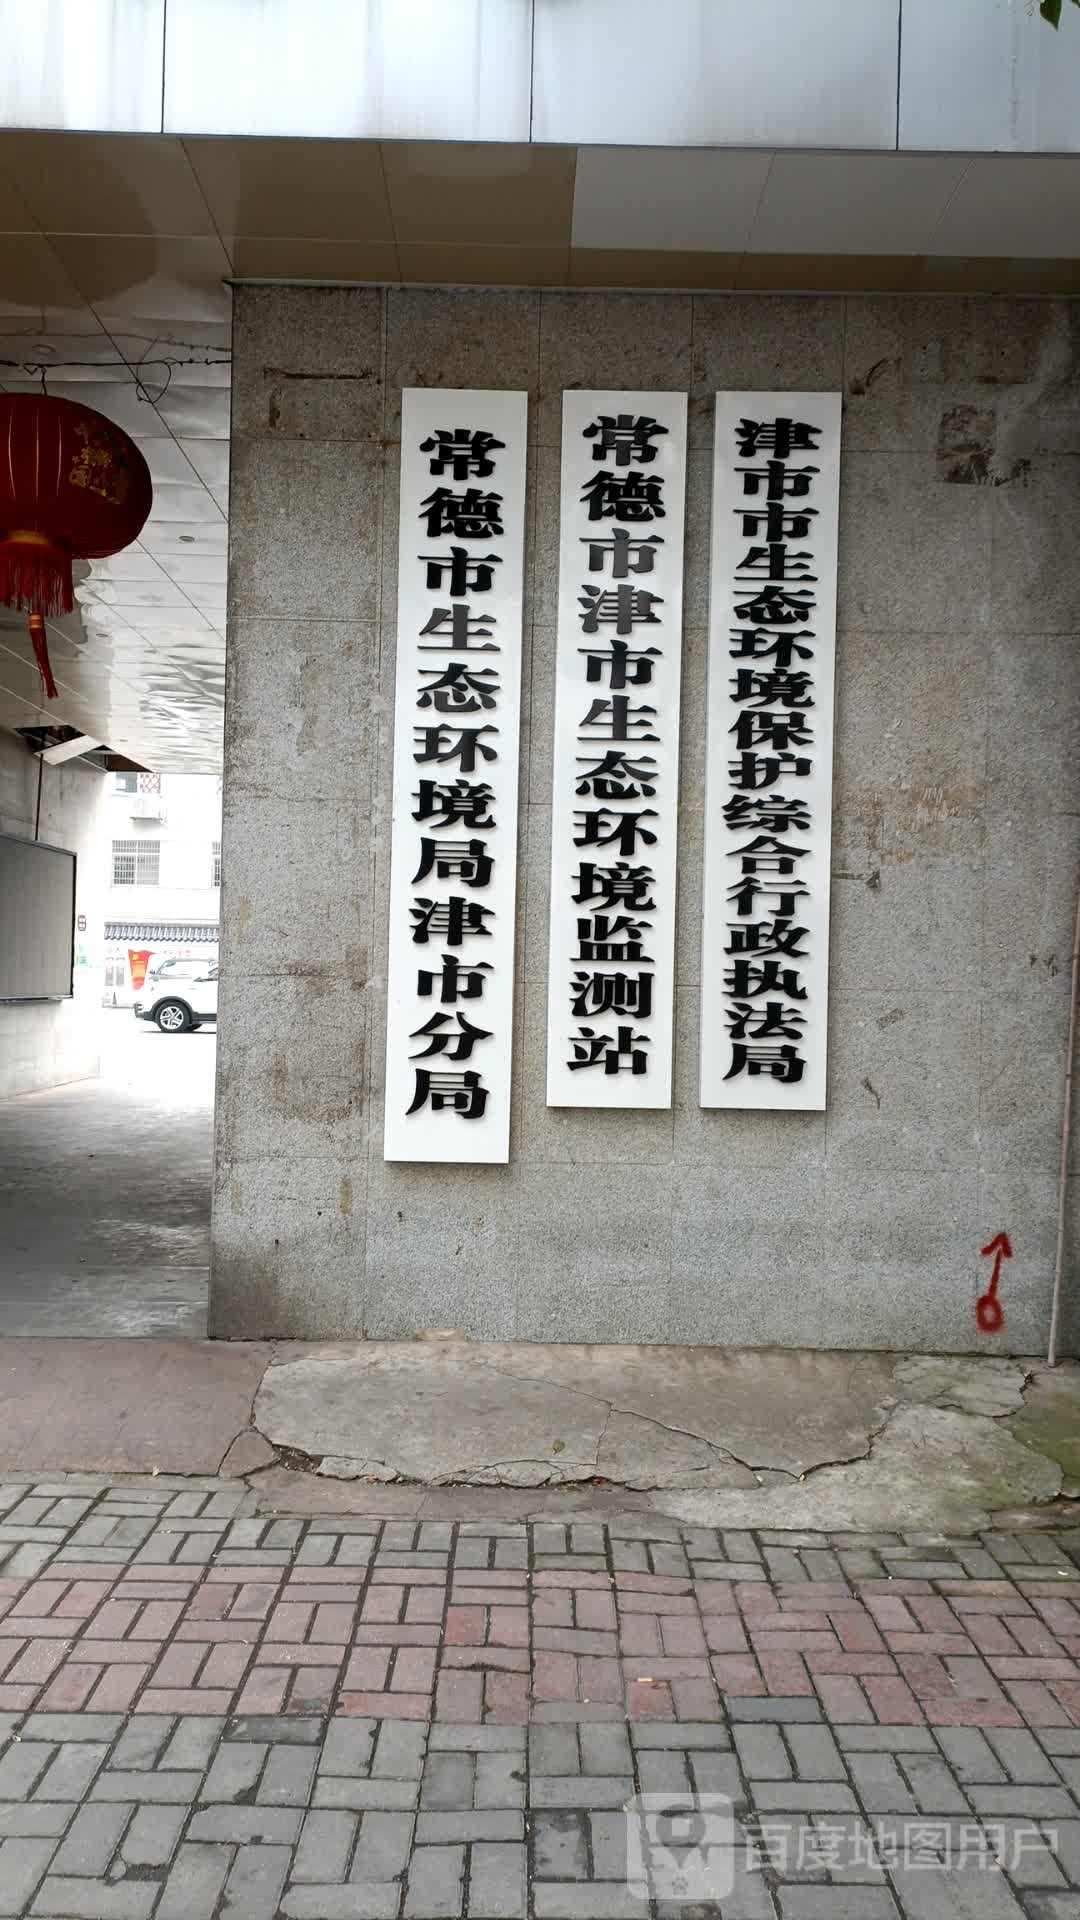 常德市生态环境局津市分局
常德市津市生态环境监测站
津市市生态环境保护综合行政执法局
百度地图用户